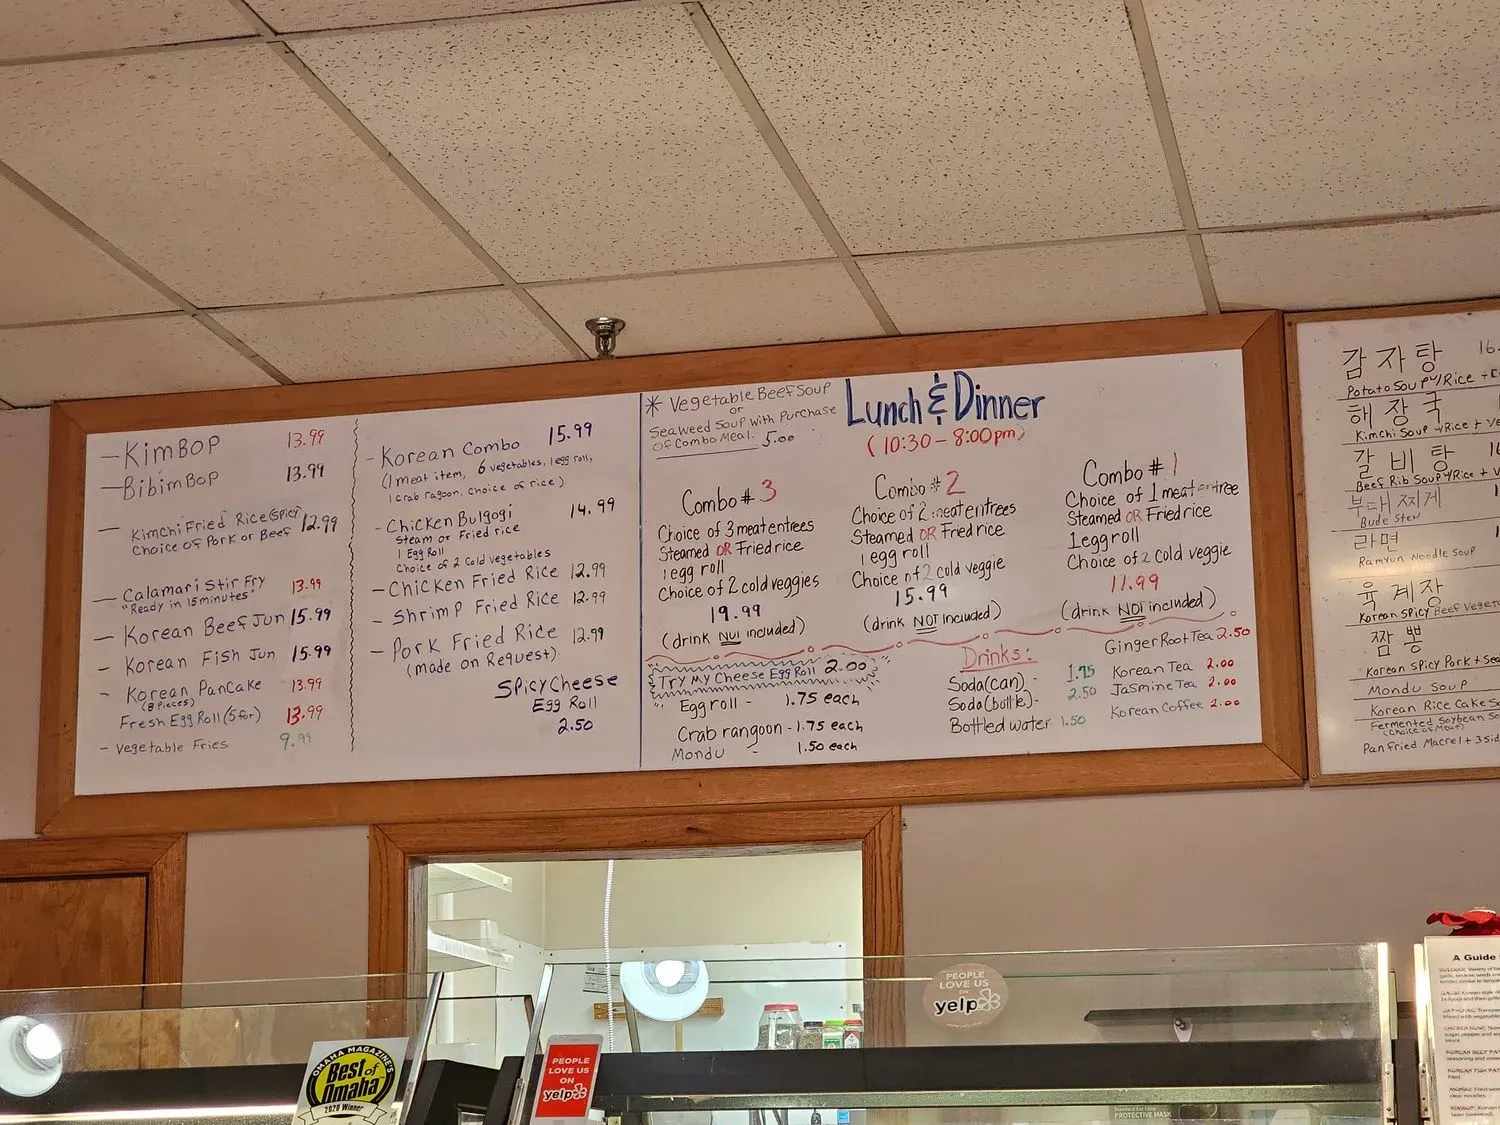 — KimBOP 13.99
— BibimBOP 13.99
— Kimchi Fried Rice (Spicy) 12.99
Choice of Pork or Beef
— Calamari Stir Fry 13.99
"Ready in 15 minutes"
— Korean Beef Jun 15.99
- Korean Fish Jun 15.99
- Korean PanCake 13.99
(8 Pieces)
Fresh Egg Roll (5 for) 13.99
- Vegetable Fries 9.99
- Korean Combo 15.99
(1 meat item, 6 vegetables, 1 egg roll,
1 crab ragoon, choice of rice)
- Chicken Bulgogi 14.99
Steam or Fried rice
1 Egg Roll
Choice of 2 Cold vegetables
- Chicken Fried Rice 12.99
- Shrimp Fried Rice 12.99
- Pork Fried Rice 12.99
(made on Request)
Spicy Cheese
Egg Roll
2.50
* Vegetable Beef Soup
or
Seaweed Soup with Purchase
of Combo Meal. 5.00
Lunch & Dinner
(10:30 - 8:00pm)
Combo # 3
Choice of 3 meat entrees
Steamed OR Fried rice
1 egg roll
Choice of 2 cold veggies
19.99
(drink NOT included)
Combo # 2
Choice of 2 meat entrees
Steamed OR Fried rice
1 egg roll
Choice of 2 cold veggie
15.99
(drink NOT included)
Combo # 1
Choice of 1 meat entree
Steamed OR Fried rice
1 egg roll
Choice of 2 Cold veggie
11.99
(drink NOT included)
Try My Cheese Egg Roll 2.00
Egg roll - 1.75 each
Crab rangoon - 1.75 each
Mondu - 1.50 each
Drinks:
Soda (can) - 1.75
Soda (bottle) - 2.50
Bottled water 1.50
Ginger Root Tea 2.50
Korean Tea 2.00
Jasmine Tea 2.00
Korean Coffee 2.00
감자탕 16
Potato Soup w/Rice +
해장국
Kimchi Soup + Rice +
갈비탕 16
Beef Rib Soup w/Rice +
부대찌게
Bude Stew
라면
Ramyun Noodle Soup
육계장
Korean Spicy Beef
짬뽕
Korean Spicy Pork +
Mondu Soup
Korean Rice Cake
Fermented Soybean
(Choice of Meat)
Pan Fried Macrel + 3
A Guide
OMAHA MAGAZINE'S
Best of
Omaha
2020 Winner
PEOPLE
LOVE US
ON
yelp
PEOPLE
LOVE US
ON
yelp
PROTECTIVE MASK